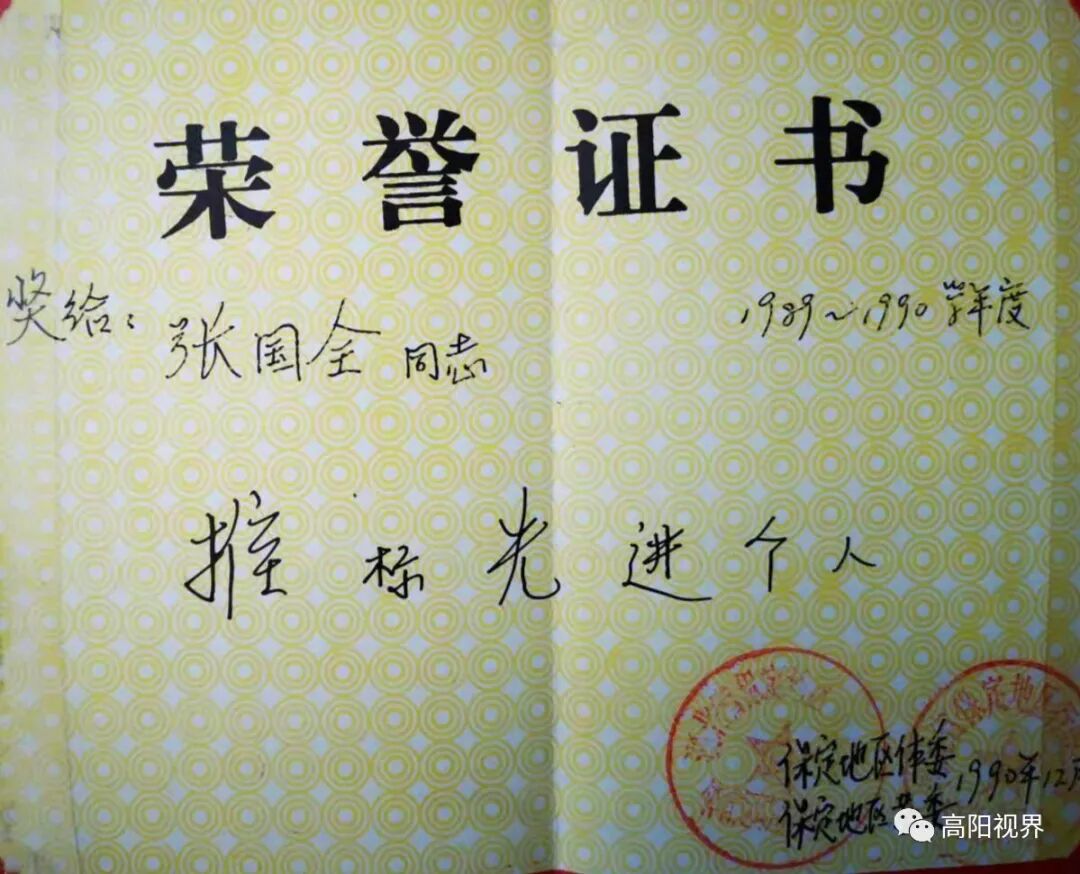 荣誉证书
奖给：张国全同志
1989～1990学年度
推标先进个人
保定地区体委
保定地区教委
1990年12月
高阳视界